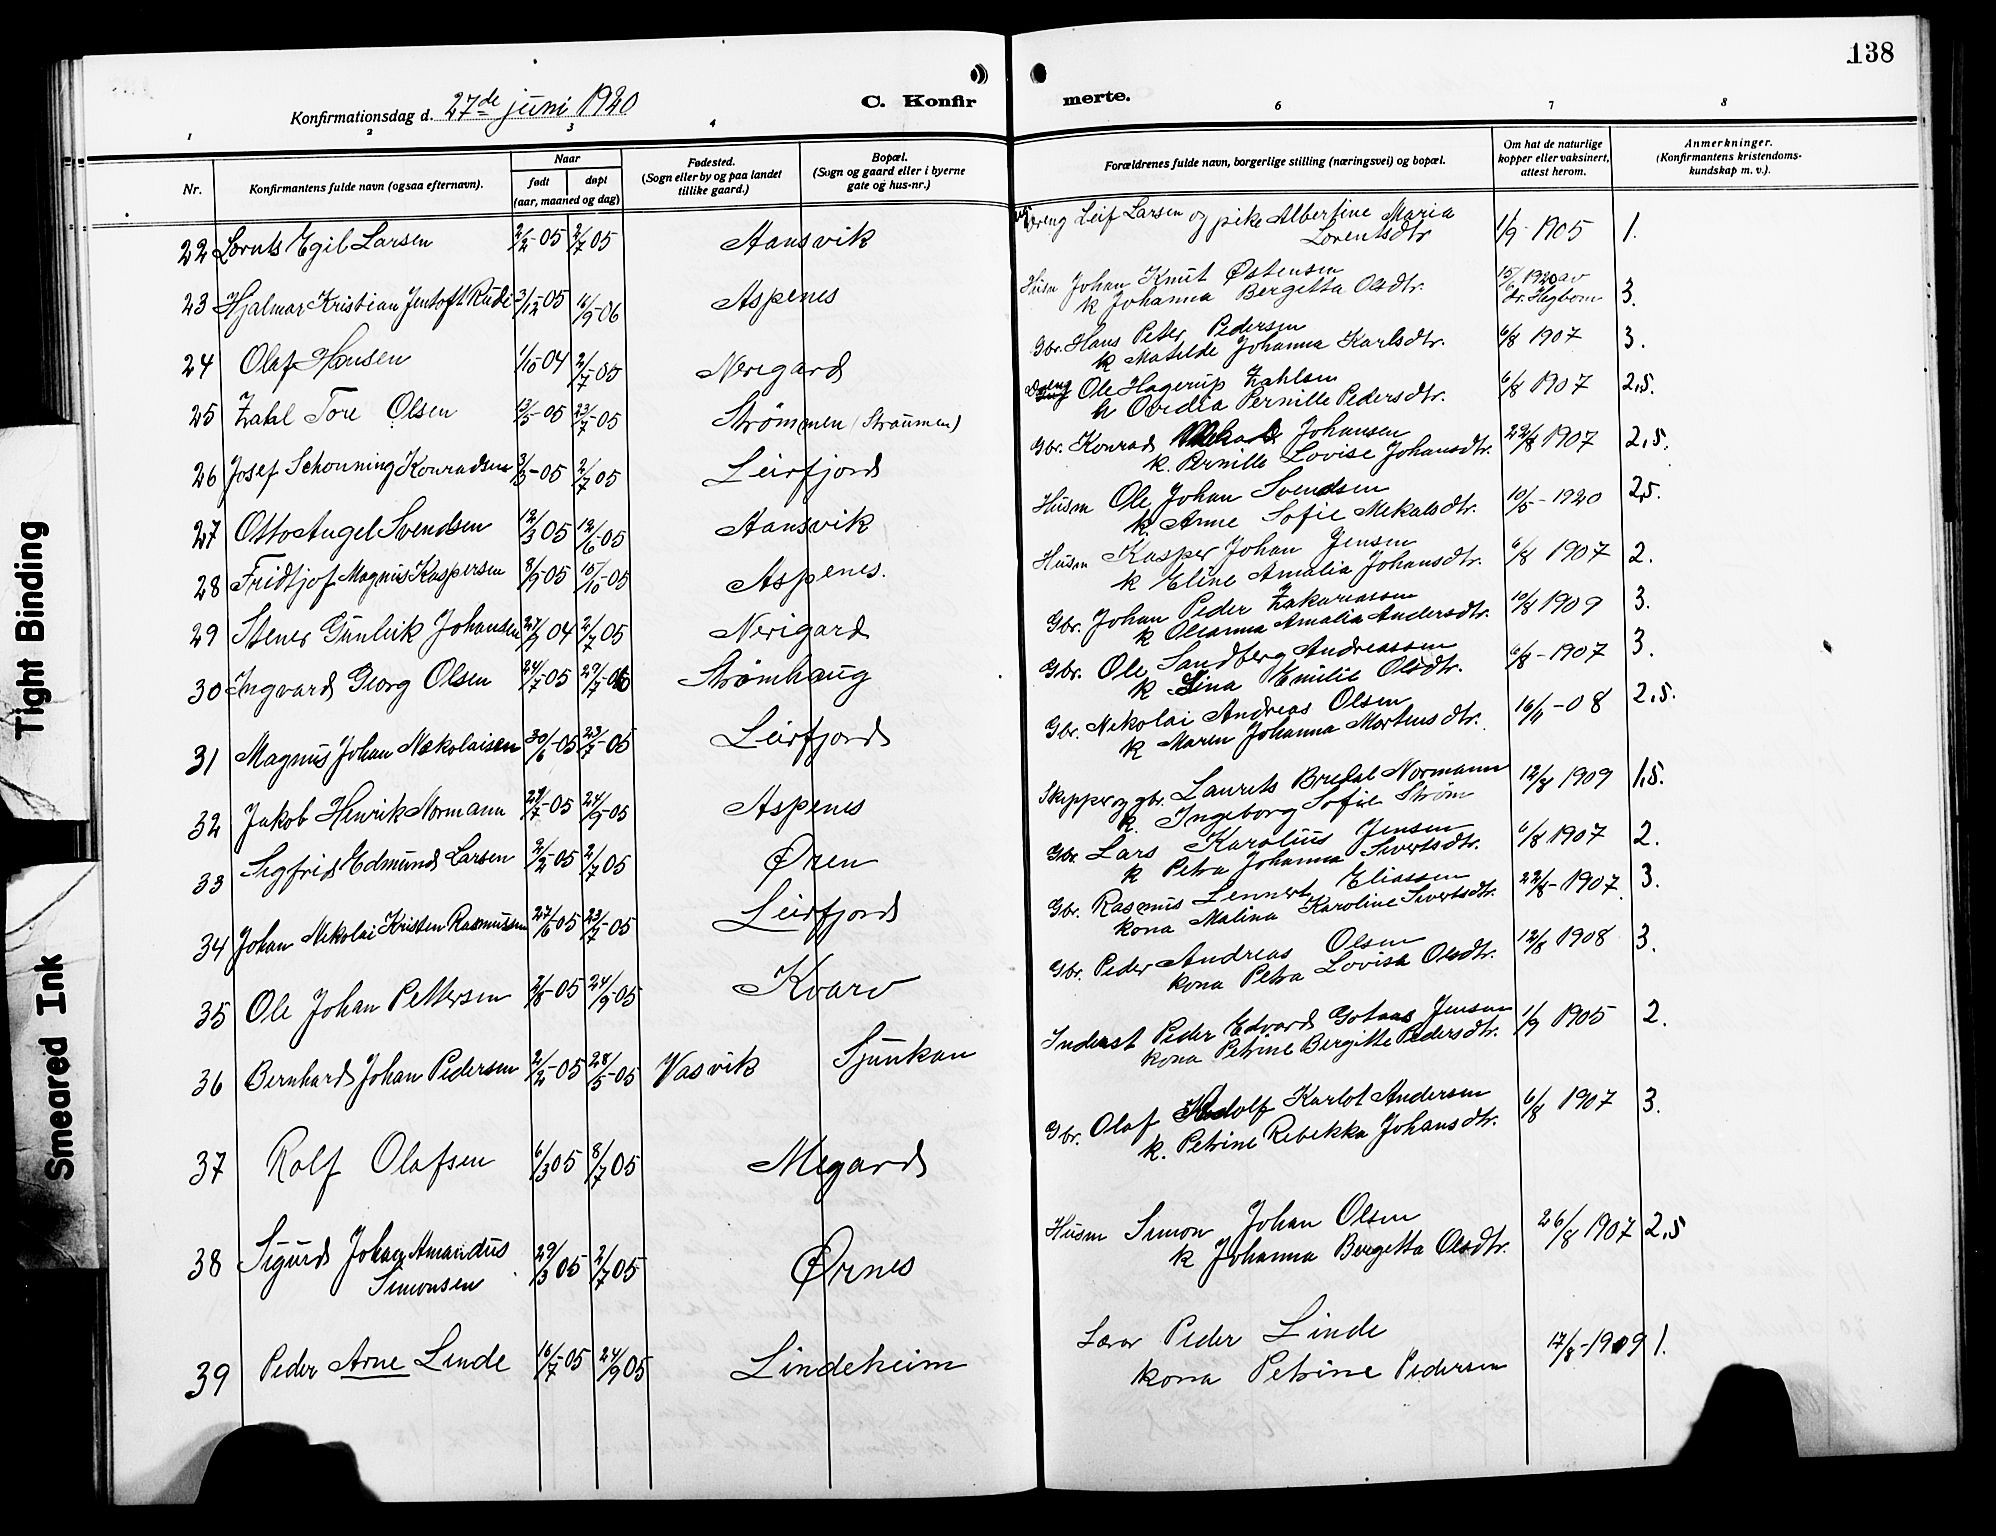 138
Konfirmationsdag d. 27de juni 1920
C. Konfirmerte.
1 2 3 4 6 7 8
Nr.
Konfirmantens fulde navn (ogsaa efternavn).
Naar
født døpt
(aar, maaned og dag)
Fødested.
(Sogn eller by og paa landet
tillike gaard.)
Bopæl.
(Sogn og gaard eller i byerne
gate og hus-nr.)
Forældrenes fulde navn, borgerlige stilling (næringsvei) og bopæl.
Om hat de naturlige
kopper eller vaksinert,
attest herom.
Anmerkninger.
(Konfirmantens kristendoms-
kundskap m. v.).
22 Lornts Egil Larsen 2/2-05 2/7 05 Aansvik
Dreng Leif Larsen og pike Albertine Maria
Lorentsdtr 1/9-1905 1.
23 Hjalmar Kristian Jentoft Rudi 3/12-05 16/9-06 Aspenes
Husm Johan Knut Østensen
k Johanna Bergetta Olsdtr. 15/6 1920 av
dr. Hegbom 3.
24 Olaf Hansen 1/10-04 2/7-05 Nerigard
Gbr. Hans Peter Pedersen
k Matilde Johanna Karlsdtr. 6/8 1907 3.
25 Zahl Tore Olsen 13/5-05 23/7-05 Strömmen (Straumen)
Ole Hagerup Zahlsen
k Ovidia Pernille Pedersdtr. 6/8 1907 2,5.
26 Josef Schonning Konradsen 3/3-05 2/7 05 Leirfjord
Gbr. Konrad Johansen
k. Pernille Lovise Johansdtr. 22/8 1907 2,5.
27 Otto Angel Svendsen 12/3 05 12/6-05 Aansvik
Husm Ole Johan Svendsen
k Anne Sofie Mekalsdtr. 10/5-1920 2,5.
28 Fridtjof Magnus Kaspersen 8/9-05 15/10-05 Aspenes.
Husm Kasper Johan Jensen
k Eline Amalia Johansdtr. 6/8 1907 2.
29 Stener Gunleik Johansen 27/9 04 2/7 05 Nerigard
Gbr. Johan Peder Zakariassen
k Oleanna Amalia Andersdtr. 10/8 1909 3.
30 Ingvard Georg Olsen 24/7-05 29/7-06 Strømhaug
Gbr. Ole Sandberg Andreassen
k Lina Emilie Olsdtr. 6/8-1907 3.
31 Magnus Johan Nekolaisen 30/6-05 23/7-05 Leirfjord
Gbr. Nekolai Andreas Olsen
k Maren Johanna Mortensdtr. 16/11-08 2,5.
32 Jakob Henrik Normann 29/7-05 24/9-05 Aspenes
Skipper og gbr. Laurits Bredal Normann
k. Ingeborg Sofie Strøm 12/8 1909 1,5.
33 Sigfrid Edmund Larsen 2/2-05 2/7 05 Øren
Gbr Lars Karolius Jensen
k Petra Johanna Sivertsdtr. 6/8 1907 2.
34 Johan Nikolai Kristen Rasmussen 27/6-05 23/7-05 Leirfjord
Gbr. Rasmus Lennert Eliassen
kona Malina Karoline Sivertsdtr. 22/8-1907. 3.
35 Ole Johan Pettersen 2/8-05 24/9-05 Kvarv
Gbr. Peder Andreas Olsen
kona Petra Lovisa Olsdtr. 12/8 1908 3.
36 Bernhard Johan Pedersen 2/2-05 28/5-05 Vasvik Sjunkan
Inderst Peder Edvard Gotaas Jensen
kona Petrine Bergitte Pedersdtr. 1/9 1905 2.
37 Rolf Olafsen 6/3 05 8/7 05 Megard
Gbr. Olaf Adolf Karlot Andersen
k. Petrine Rebekka Johansdtr. 6/8 1907 3.
38 Sigurd Johan Amandus
Simonsen 29/3 05 2/7 05 Ørnes
Husm Simon Johan Olsen
k Johanna Bergetta Olsdtr. 26/8 1907 2,5
39 Peder Arne Linde 16/7-05 24/9 05 Lindeheim
Lærer Peder Linde
kona Petrine Pedersen 17/8-1909 1.
Tight Binding
Smeared Ink